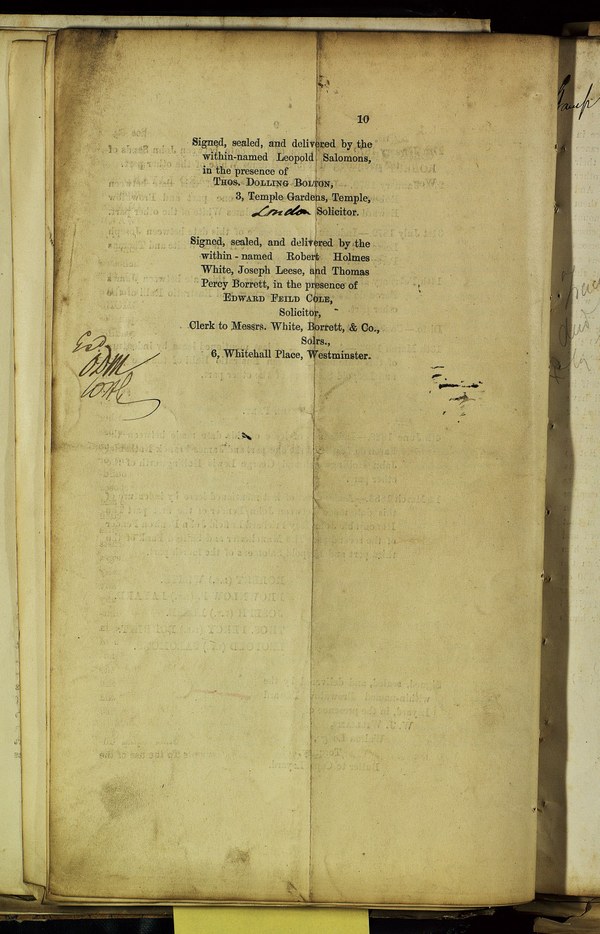 10
Signed, sealed, and delivered by the
within-named Leopold Salomons,
in the presence of
THOS. DOLLING BOLTON,
3, Temple Gardens, Temple,
London Solicitor.
Signed, sealed, and delivered by the
within-named Robert Holmes
White, Joseph Leese, and Thomas
Percy Borrett, in the presence of
EDWARD FEILD COLE,
Solicitor,
Clerk to Messrs. White, Borrett, & Co.,
Solrs.,
6, Whitehall Place, Westminster.